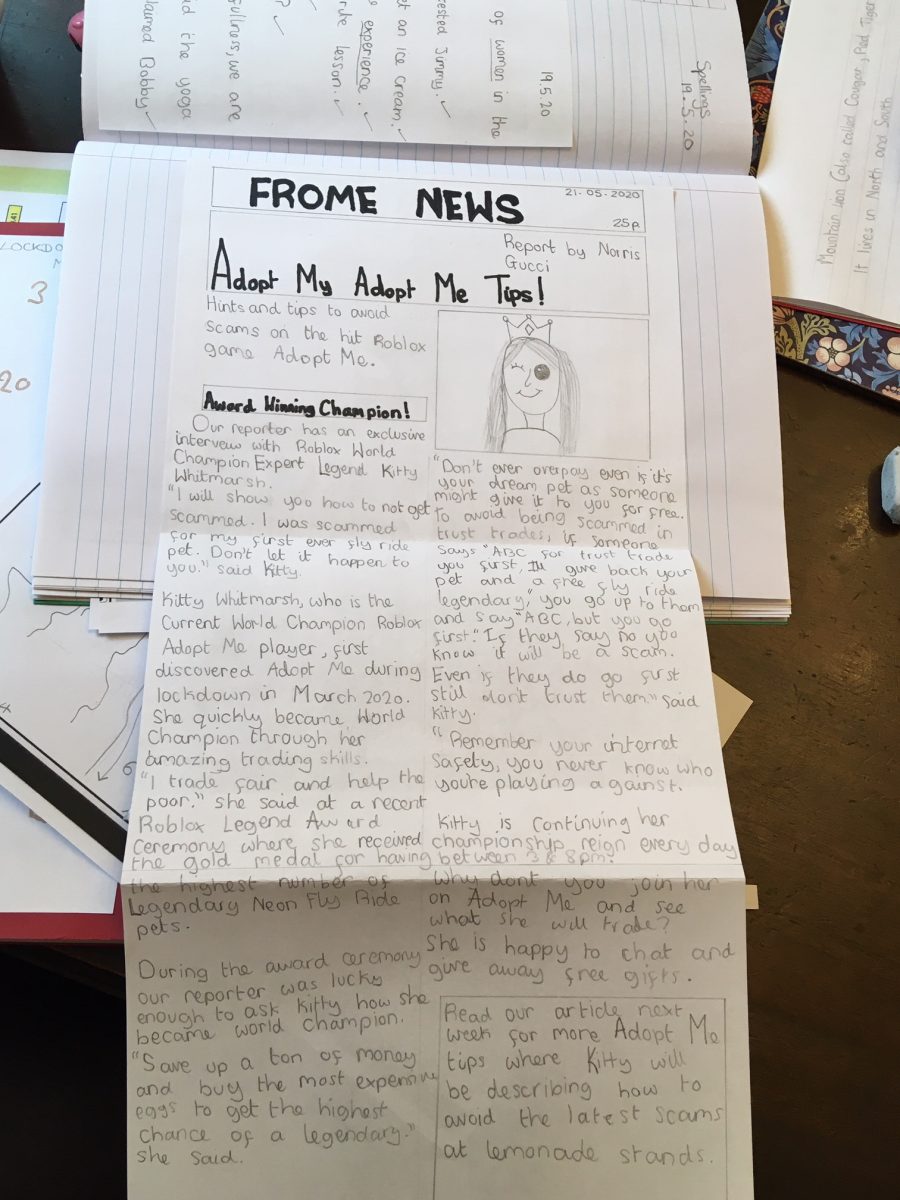 of women in the
19.5.20
Spellings
19.5.20
FROME NEWS
21-05-2020
25p
Report by Norris
Gucci
Adopt My Adopt Me Tips!
Hints and tips to avoid
scams on the hit Roblox
game Adopt Me.
Award Winning Champion!
Our reporter has an exclusive
interveiw with Roblox World
Champion Expert Legend Kitty
Whitmarsh.
"I will show you how to not get
scammed. I was scammed
for my first ever fly ride
pet. Don't let it happen to
you." said Kitty.
Kitty Whitmarsh, who is the
Current World Champion Roblox
Adopt Me player, first
discovered Adopt Me during
lockdown in March 2020.
She quickly became World
Champion through her
amazing trading skills.
"I trade fair and help the
poor." she said at a recent
Roblox Legend Award
Ceremony where she received
the gold medal for having
the highest number of
Legendary Neon Fly Ride
pets.
During the award ceremony
our reporter was lucky
enough to ask Kitty how she
became world champion.
"Save up a ton of money
and buy the most expensive
eggs to get the highest
chance of a legendary."
she said.
"Don't ever overpay even if it's
your dream pet as someone
might give it to you for free.
To avoid being scammed in
trust trades, if someone
says "ABC for trust trade
you first, I'll give back your
pet and a free fly ride
legendary," you go up to them
and say "ABC, but you go
first." If they say no you
know it will be a scam.
Even if they do go first
still don't trust them." said
Kitty.
"Remember your internet
Safety, you never know who
you're playing against.
Kitty is continuing her
championship reign every day
between 3 & 8pm.
Why dont you join her
on Adopt Me and see
what she will trade?
She is happy to chat and
give away free gifts.
Read our article next
week for more Adopt Me
tips where Kitty will
be describing how to
avoid the latest scams
at lemonade stands.
ested Jimmy.
et an ice cream.
experience.
lesson.
fullness, we are
id the yoga
laimed Bobby
Mountain lion (also called Cougar, Red Tiger
It lives in North and South
LOCKDO
3
20